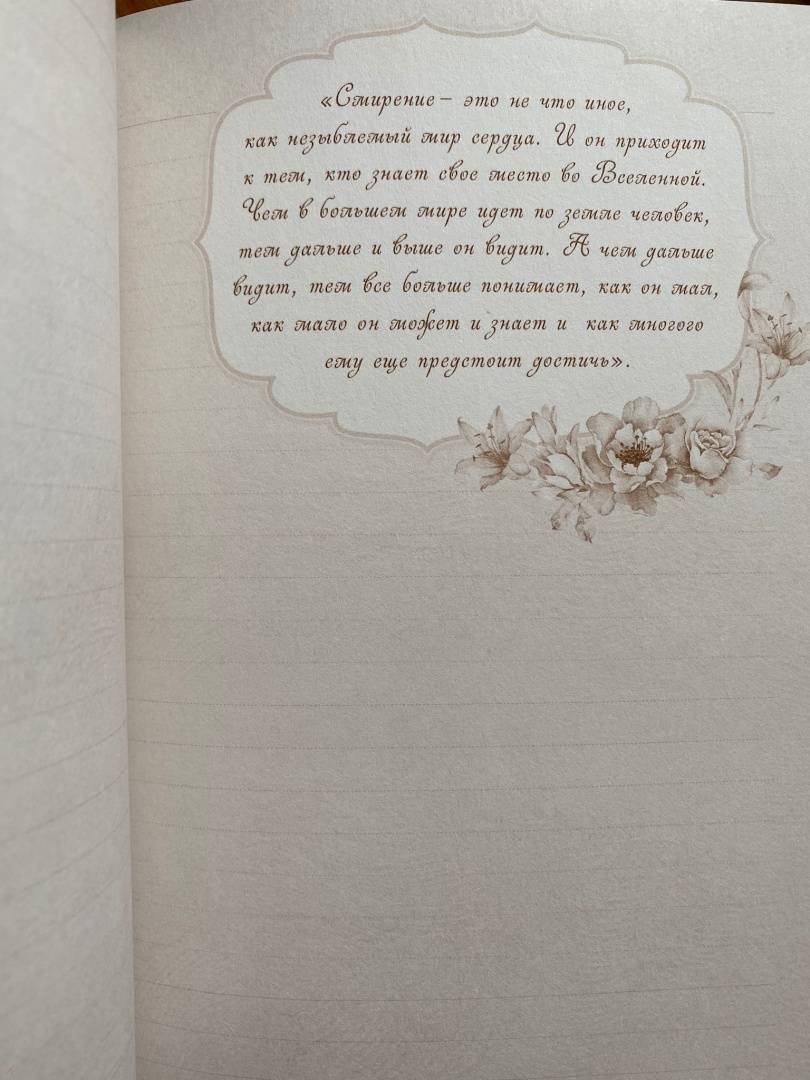 «Смирение – это не что иное,
как незыблемый мир сердца. И он приходит
к тем, кто знает свое место во Вселенной.
Чем в большем мире идет по земле человек,
тем дальше и выше он видит. А чем дальше
видит, тем все больше понимает, как он мал,
как мало он может и знает и как многого
ему еще предстоит достичь».